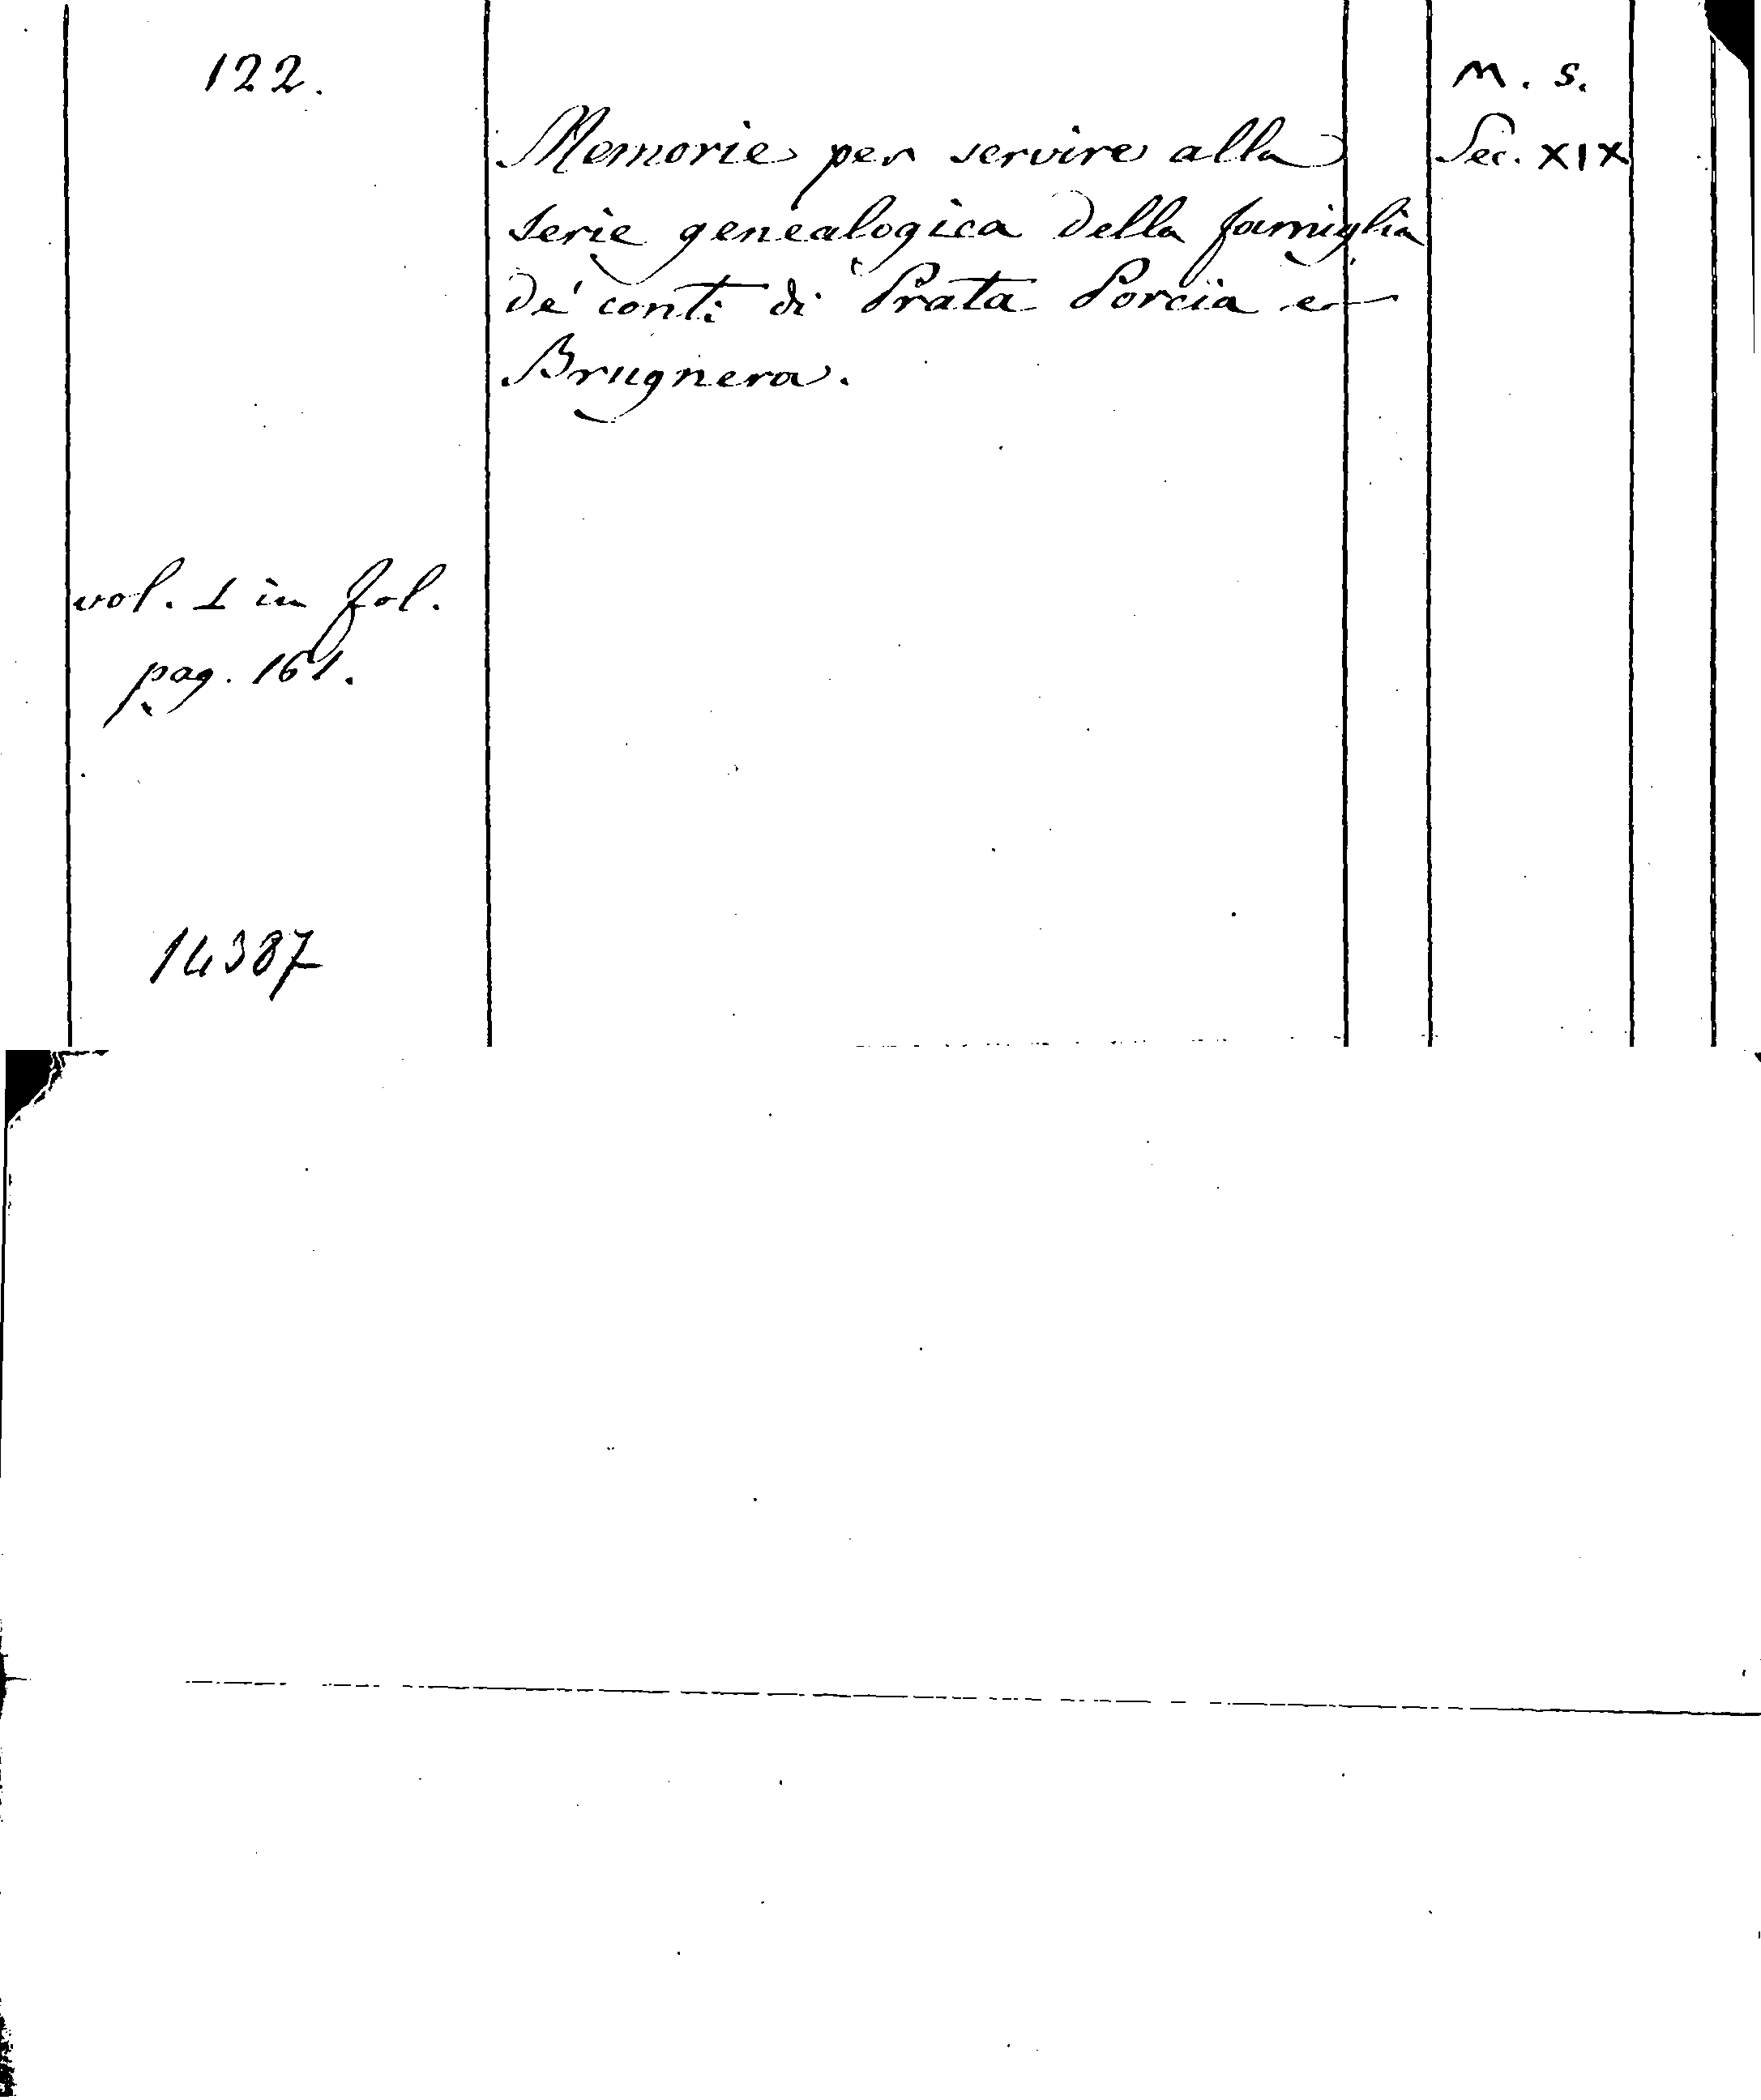 122.
M. S.
Memorie per servire alla
Sec. XIX
serie genealogica della famiglia
de' conti di Prata Porcia e
Brugnera.
vol. 1 in fol.
pag. 161.
14387